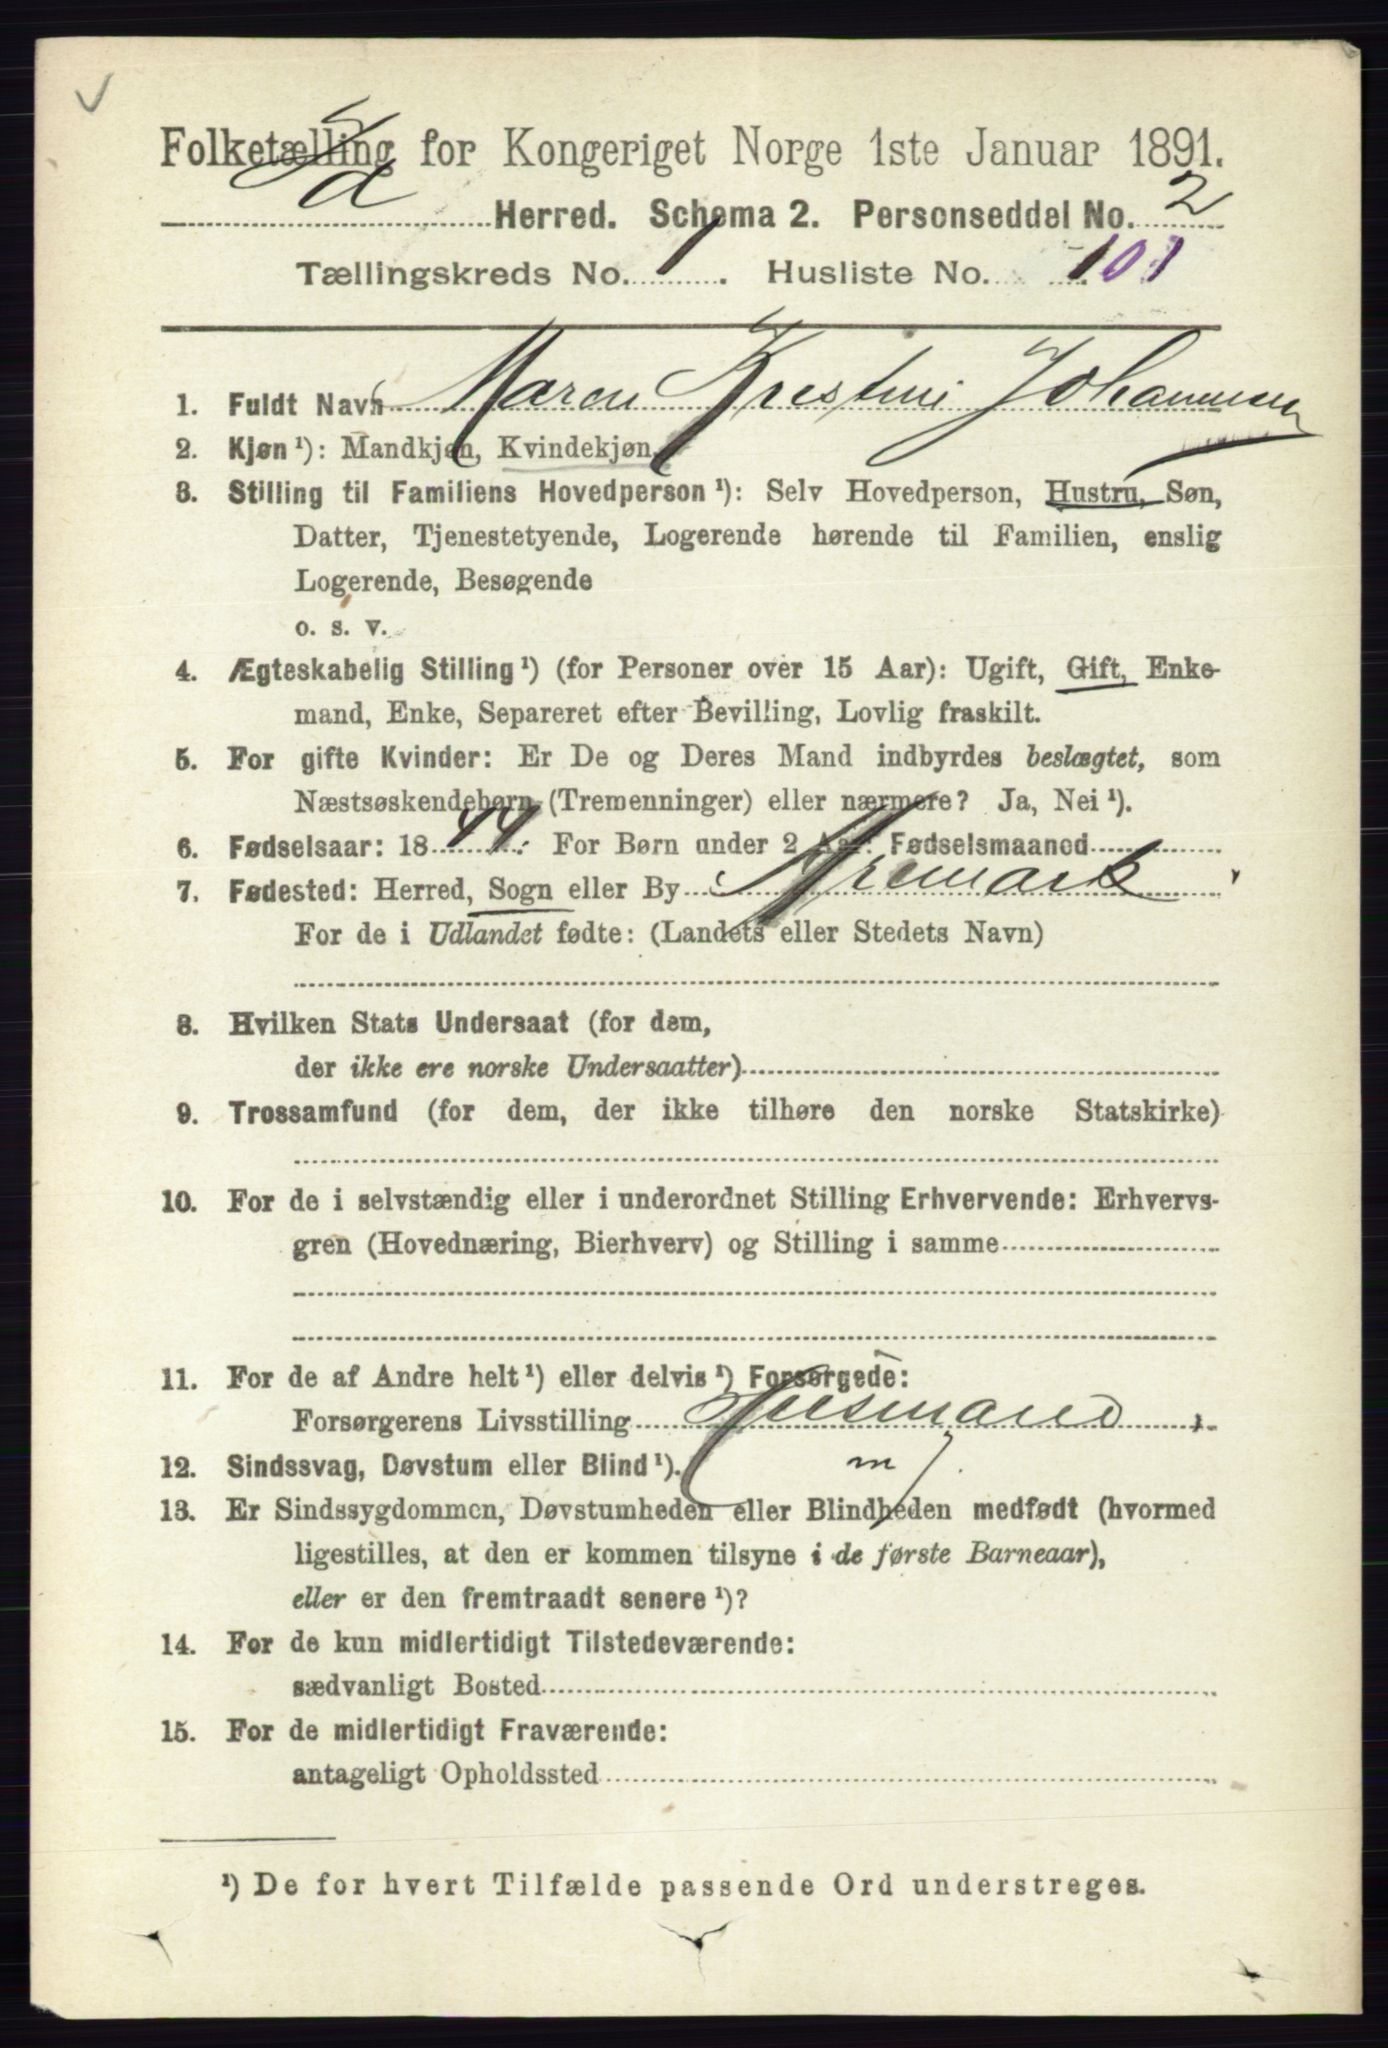 Folketælling for Kongeriget Norge 1ste Januar 1891.
Id Herred. Schema 2. Personseddel No. 2
Tællingskreds No. 1. Husliste No. 101
1. Fuldt Navn Maren Kristine Johannesen
2. Kjøn ¹): Mandkjøn, Kvindekjøn.
3. Stilling til Familiens Hovedperson ¹): Selv Hovedperson, Hustru, Søn,
Datter, Tjenestetyende, Logerende hørende til Familien, enslig
Logerende, Besøgende
o. s. v.
4. Ægteskabelig Stilling ¹) (for Personer over 15 Aar): Ugift, Gift, Enke-
mand, Enke, Separeret efter Bevilling, Lovlig fraskilt.
5. For gifte Kvinder: Er De og Deres Mand indbyrdes beslægtet, som
Næstsøskendebørn (Tremenninger) eller nærmere? Ja, Nei ¹).
6. Fødselsaar: 1844. For Børn under 2 Aar: Fødselsmaaned
7. Fødested: Herred, Sogn eller By Aremark
For de i Udlandet fødte: (Landets eller Stedets Navn)
8. Hvilken Stats Undersaat (for dem,
der ikke ere norske Undersaatter)
9. Trossamfund (for dem, der ikke tilhøre den norske Statskirke)
10. For de i selvstændig eller i underordnet Stilling Erhvervende: Erhvervs-
gren (Hovednæring, Bierhverv) og Stilling i samme
11. For de af Andre helt ¹) eller delvis ¹) Forsørgede:
Forsørgerens Livsstilling Husmand
12. Sindssvag, Døvstum eller Blind ¹).
13. Er Sindssygdommen, Døvstumheden eller Blindheden medfødt (hvormed
ligestilles, at den er kommen tilsyne i de første Barneaar),
eller er den fremtraadt senere ¹)?
14. For de kun midlertidigt Tilstedeværende:
sædvanligt Bosted
15. For de midlertidigt Fraværende:
antageligt Opholdssted
¹) De for hvert Tilfælde passende Ord understreges.